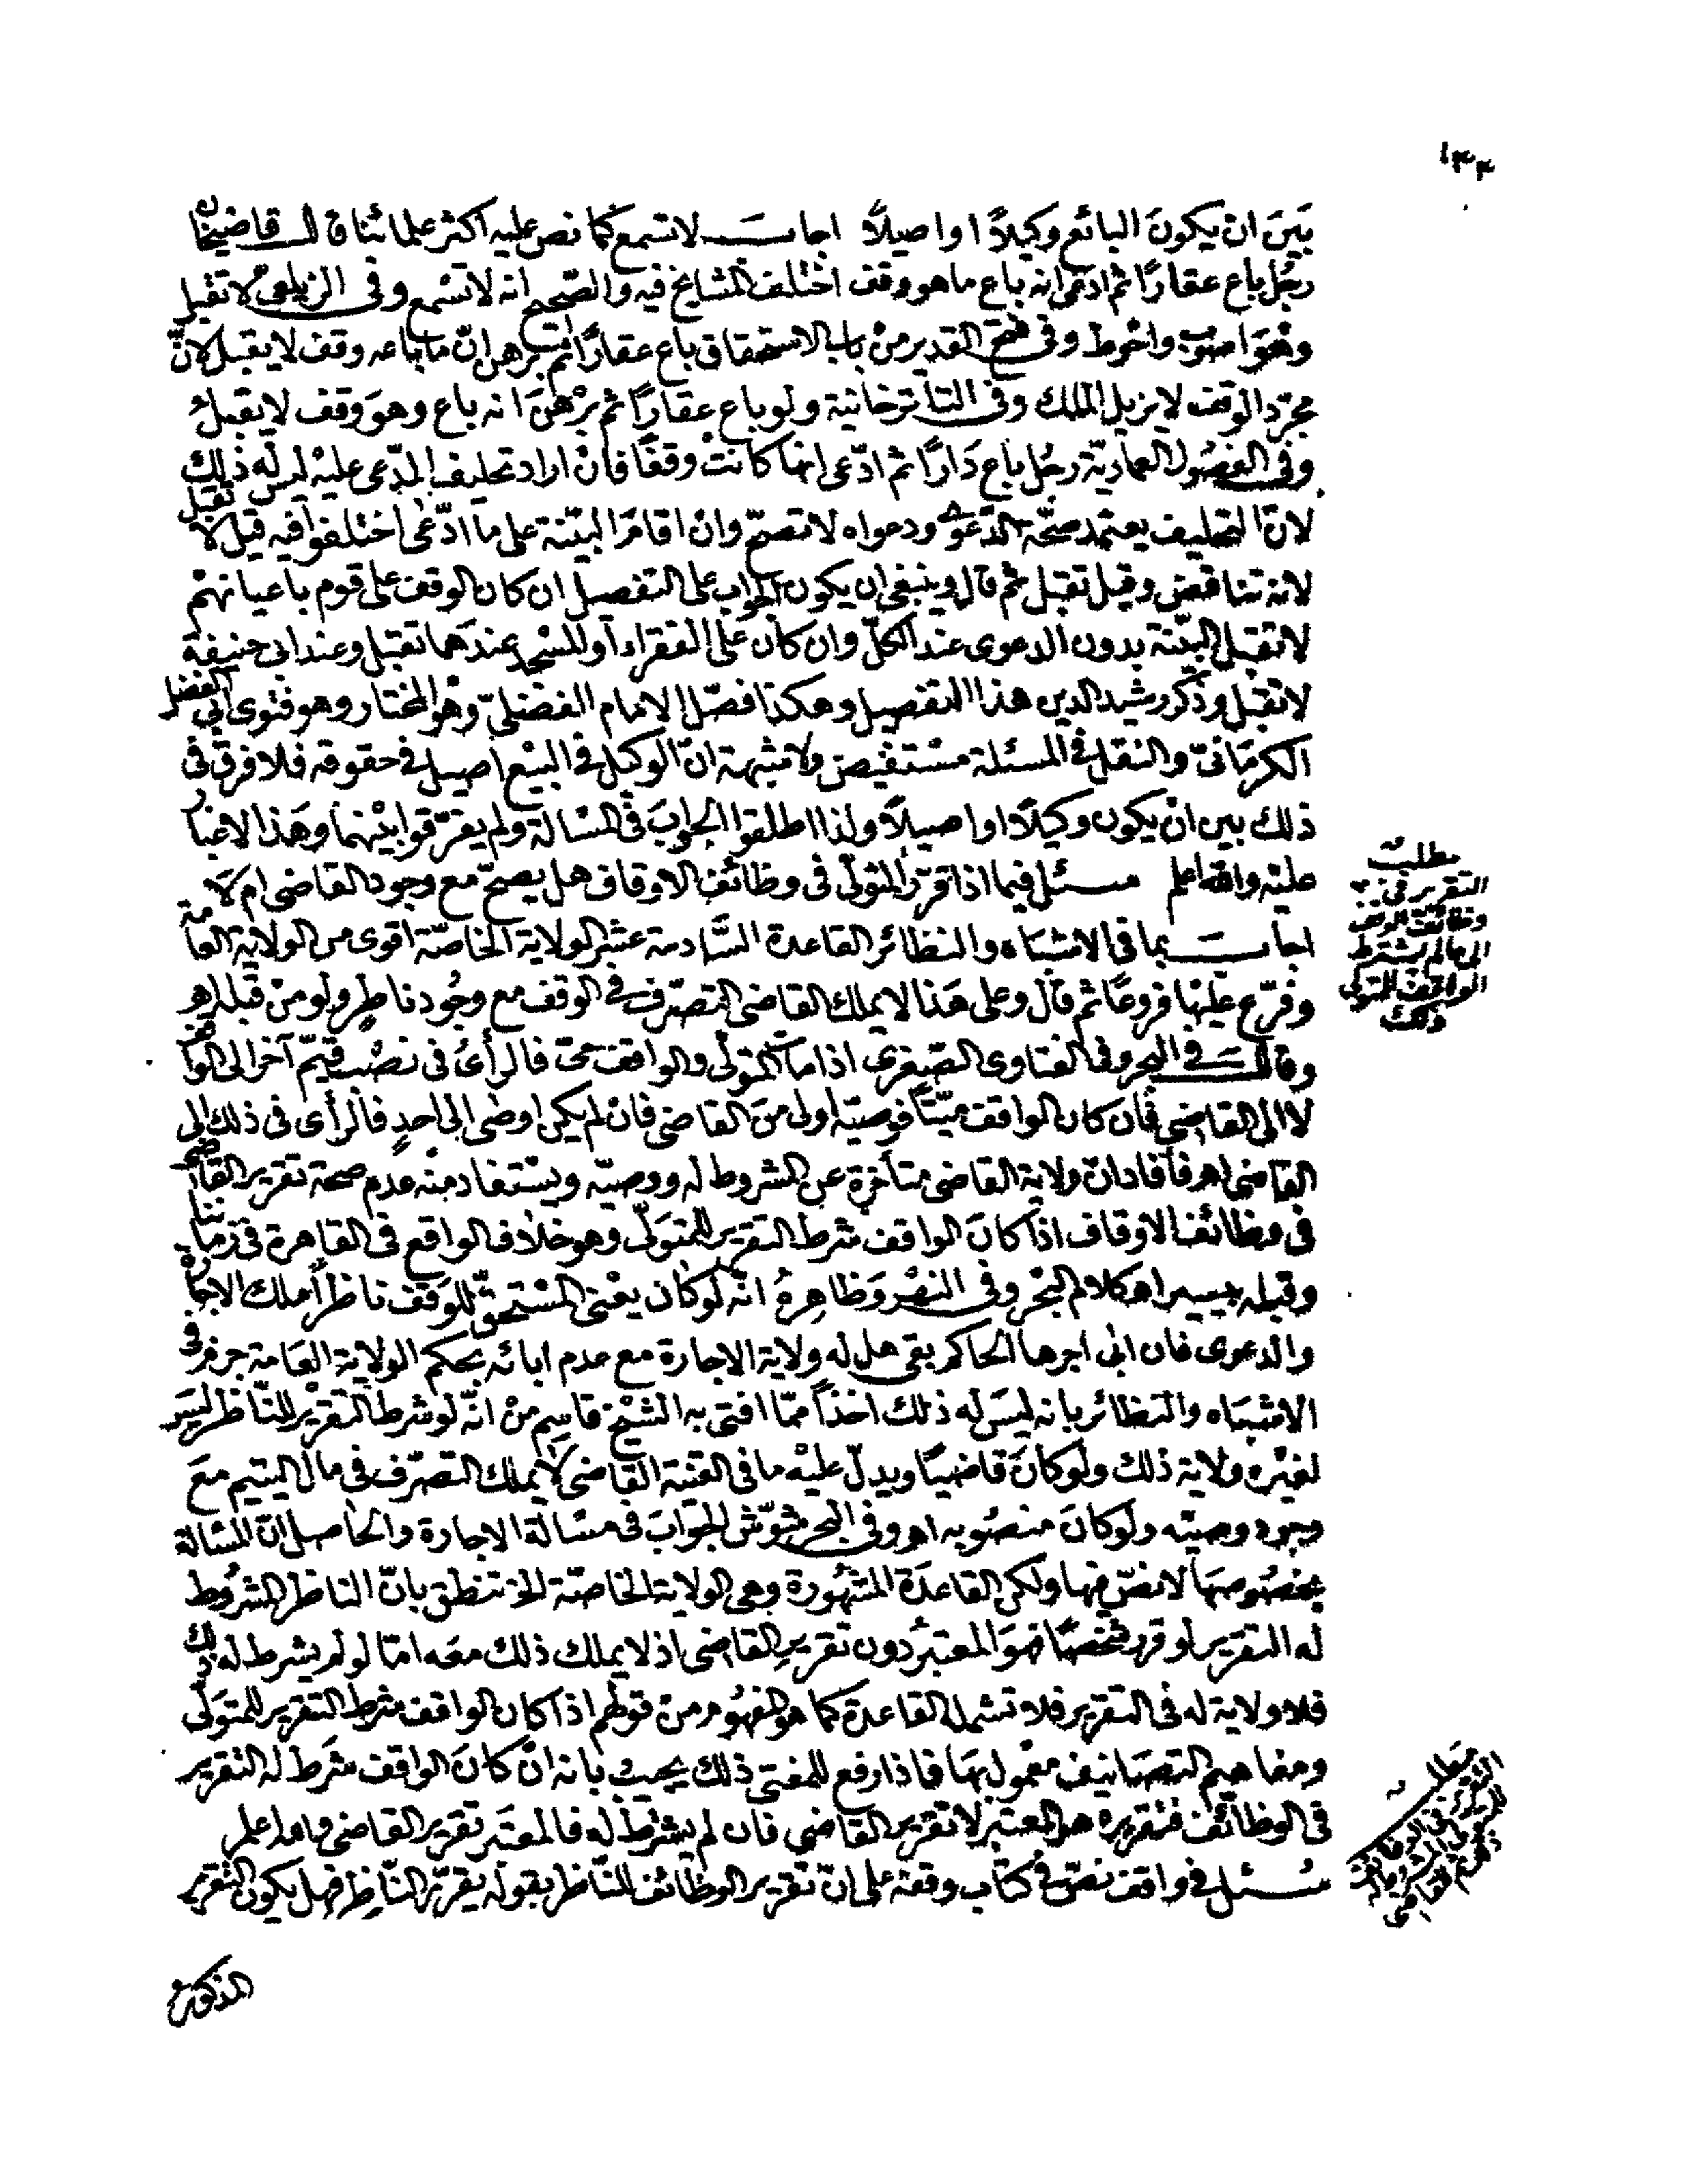 ١٣٣
بَينَ ان يكونَ البائع وكيلاً او اصيلاً اجابَ لا تسمع كما نص عليه اكثر علمائنا قال قاضيخان
رجُل باع عقارًا ثم ادعى انه باع ما هو وقف اختلف المشايخ فيه والصّحيح انه لا تسْمع وفى الزيلعى لا تقبل
وهُوَ اصوب واحْوط وفى فتح القدير منْ باب الاستحقاق باع عقارًا ثم برهن انّ ما باعه وقف لا يقبل لانّ
مجرّد الوقف لا يزيل الملك وفى التاترخانية ولو باع عقارًا ثم برْهنَ انه باع وهوَ وقف لا يقبلُ
وفى الفصُول العمادية رجُل باع دَارًا ثم ادّعى انها كانتْ وقفًا فانْ اراد تحليف المدّعى عليْه ليس له ذلك
لانّ التحليف يعتمد صحّة الدّعوى ودعواه لا تصحّ وانْ اقامَ البيّنة على ما ادّعى اختلفوا فيه قيل لا تقبل
لانه تناقض وقيل تقبل ثم قال وينبغى ان يكون الجواب على التفصيل ان كان الوقف على قوم باعيانهمْ
لا تقبل البيّنة بدون الدعوى عند الكلّ وان كان على الفقراء او للمسْجد عندَهما تقبل وعند ابى حنيفة
لا تقبل وذكر رشيد الدين هذا التفصيل وهكذا فصّل الامام الفضلىّ وهُو المختار وهو فتوى ابى الفضل
الكرمَانىّ والنقل فى المسئلة مسْتفيض ولا شبهة انّ الوكيل فى البيْع اصيل فى حقوقه فلا فرق فى
ذلك بين انْ يكون وكيلاً او اصيلاً ولذا اطلقوا الجوابَ فى المسْالة ولم يفرّقوا بيْنهما وهَذا لا غبار
عليْه والله اعلم مسئل فيما اذا قرّر المتولّى فى وظائف الاوقاف هل يصحّ مع وجود القاضى ام لا
اجابَ بما فى الاشبَاه والنظائر القاعدة السَّادسة عشر الولاية الخاصّة اقوى من الولاية العامة
وفرّع عليْها فروعًا ثم قال وعلى هَذا لا يملك القاضى التصرّف فى الوقف مع وجُود ناظِرٍ ولو منْ قبله اهـ
وقالَ فى البحر وفى الفتاوى الصّغرى اذا مات المتولّى والواقف حىّ فالرأىُ فى نصْب قيّم آخر الى الواقف
لا الى القاضى فان كان الواقف ميّتًا فوصيّه اولى منَ القاضى فانْ لم يكن اوصَى الى احدٍ فالرأى فى ذلك الى
القاضى اهـ فافاد انّ ولاية القاضى متأخرة عن المشروط له ووصيّه ويستفاد منْه عدم صحة تقرير القاضى
فى وظائف الاوقاف اذا كانَ الواقف شرط التقرير للمتوَلّى وهو خلاف الواقع فى القاهرة فى زماننا
وقبله بيسير اهـ كلام البحْر وفى النهْر وَظاهِرهُ انّه لو كان يعْنى المسْتحقّ للوَقف ناظرًا ملك الايجار
والدعوى فان ابى اجرها الحاكم بقى هل له ولاية الاجارة مع عدم ابائه بحكم الولاية العَامة جزم فى
الاشبَاه والنظائر بانه ليسَ له ذلك اخذًا ممّا افتى به الشيْخ قاسِم منْ انّه لو شرط التقرْير للنّاظر ليسَ
لغيْره ولاية ذلك ولو كانَ قاضيًا ويدلّ عليْه ما فى القنية القاضى لا يملك التصرّف فى مال اليتيم معَ
وجود وصيّه ولو كانَ منصُوبه اهـ وفى البحر شوّش الجوَابَ فى مسْالة الاجارة والحاصل انّ المسْالة
بخصُوصهَا لا نصّ فيها ولكن القاعدَة المشهُورة وهى الولاية الخاصّة الخ تنطق بانّ الناظر المشرُوط
له التقرير لو قرر شخصًا فهوَ المعتبرُ دون تقرير القاضى اذ لا يملك ذلك معَه امّا لو لم يشرط له ذلك
فلا ولاية له فى التقرير فلا تشمله القاعدة كما هو المفهُوم من قولهم اذا كان الواقف شرط التقرير للمتوَلّى
ومفاهيم التصَانيف معْمول بهَا فاذا رفع للمفتى ذلك يجيبُ بانه انْ كانَ الواقف شرَط له التقرير
فى الوظائف فتقريره هو المعتبر لا تقرير القاضى فان لم يشرط له فالمعتَبر تقرير القاضى والله اعلم
سُئل فى واقف نصّ فى كتاب وقفه على انّ تقرير الوظائف للنّاظر بقوله يقرّر النّاظر فهل يكون التقرير
مطلب
التقرير فى
وظائف الوقف
الى
الواقف للمتولى
ذلك
المذكور